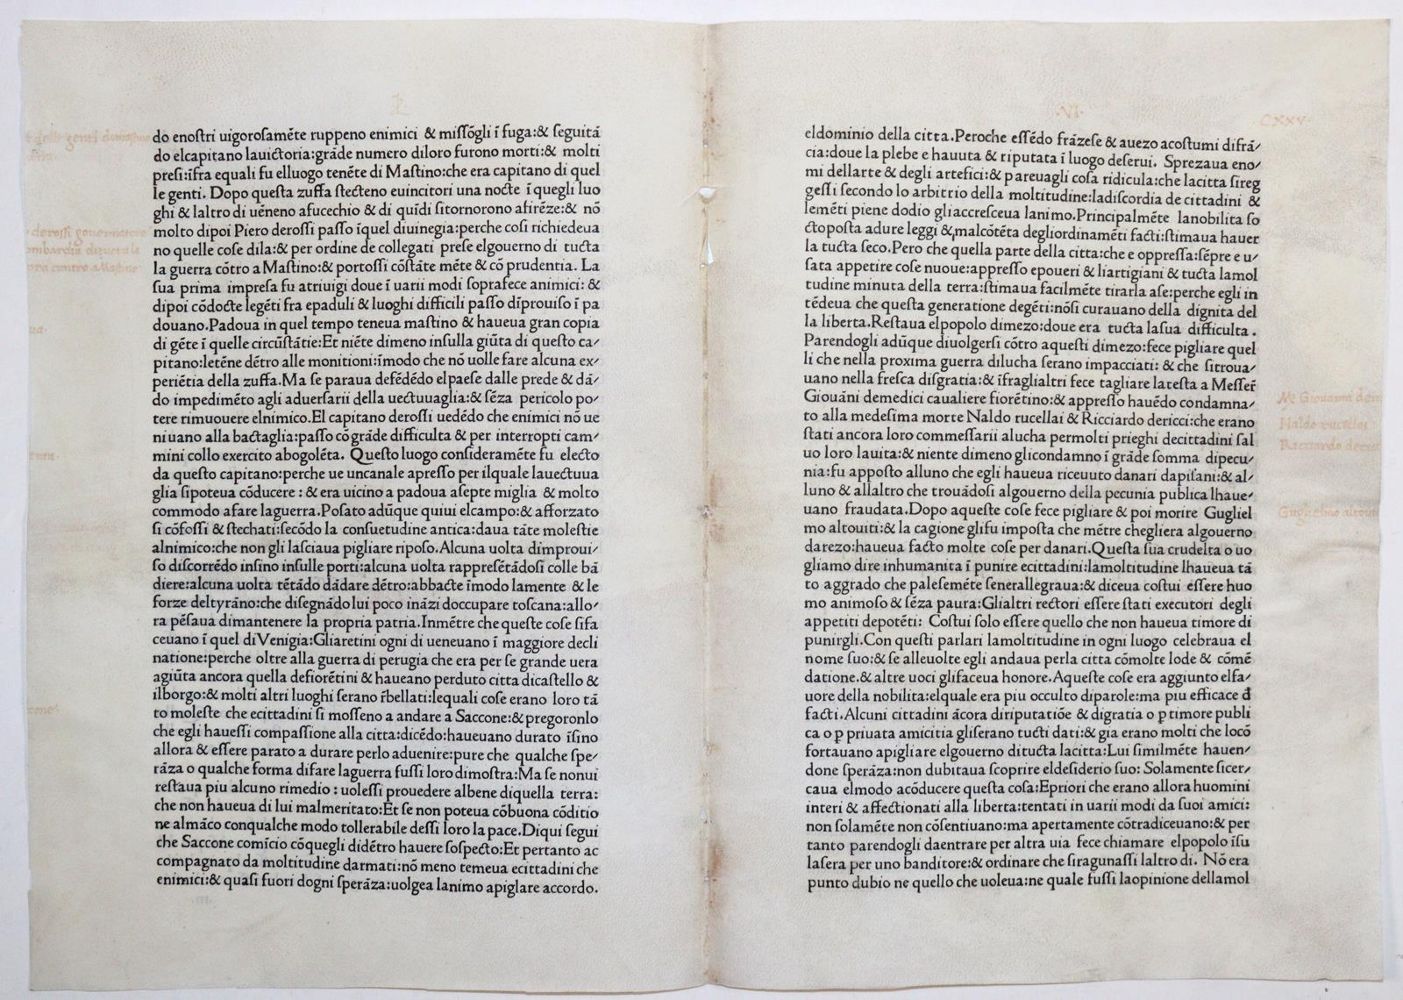 do enoſtri uigoroſamēte ruppeno enimici & miſſōgli ī fuga:& ſeguitā
do elcapitano lauictoria:grāde numero diloro furono morti:& molti
preſi:īfra equali fu elluogo tenēte di Maſtino:che era capitano di quel
le genti. Dopo queſta zuffa ſtecteno euincitori una nocte ī quegli luo
ghi & laltro di uēneno afucechio & di quīdi ſitornorono afirēze:& nō
molto dipoi Piero deroſſi paſſo īquel diuinegia:perche coſi richiedeua
no quelle coſe dila:& per ordine de collegati preſe elgouerno di tucta
la guerra cōtro a Maſtino:& portoſſi cōſtāte mēte & cō prudentia. La
ſua prima impreſa fu atriuigi doue ī uarii modi ſoprafece animici: &
dipoi cōdocte legēti fra epaduli & luoghi difficili paſſo dīprouiſo ī pa
douano.Padoua in quel tempo teneua maſtino & haueua gran copia
di gēte ī quelle circūſtātie:Et niēte dimeno inſulla giūta di queſto ca⸗
pitano:letēne dētro alle monitioni:īmodo che nō uolle fare alcuna ex⸗
periētia della zuffa.Ma ſe paraua defēdēdo elpaeſe dalle prede & dā⸗
do impedimēto agli aduerſarii della uectuuaglia:& ſēza pericolo po⸗
tere rimuouere elnimico.El capitano deroſſi uedēdo che enimici nō ue
niuano alla bactaglia:paſſo cō grāde difficulta & per interropti cam⸗
mini collo exercito abogolēta. Queſto luogo conſideramēte fu electo
da queſto capitano:perche ue uncanale apreſſo per ilquale lauectuua
glia ſipoteua cōducere : & era uicino a padoua aſepte miglia & molto
commodo afare laguerra.Poſato adūque quiui elcampo:& afforzato
ſi cōfoſſi & ſtechati:ſecōdo la conſuetudine antica:daua tāte moleſtie
alnimico:che non gli laſciaua pigliare ripoſo.Alcuna uolta dimproui⸗
ſo diſcorrēdo inſino inſulle porti:alcuna uolta rappreſētādoſi colle bā
diere:alcuna uolta tētādo dādare dētro:abbacte īmodo lamente & le
forze deltyrāno:che diſegnādo lui poco ināzi doccupare toſcana:allo⸗
ra pēſaua dimantenere la propria patria.Inmētre che queſte coſe ſifa
ceuano ī quel diVenigia:Gliaretini ogni di ueneuano ī maggiore decli
natione:perche oltre alla guerra di perugia che era per ſe grande uera
agiūta ancora quella defiorētini & haueano perduto citta dicaſtello &
ilborgo:& molti altri luoghi ſerano r̄bellati:lequali coſe erano loro tā
to moleſte che ecittadini ſi moſſeno a andare a Saccone:& pregoronlo
che egli haueſſi compaſſione alla citta:dicēdo:haueuano durato īſino
allora & eſſere parato a durare perlo aduenire:pure che qualche ſpe⸗
rāza o qualche forma difare laguerra fuſſi loro dimoſtra:Ma ſe nonui
reſtaua piu alcuno rimedio : uoleſſi prouedere albene diquella terra:
che non haueua di lui malmeritato:Et ſe non poteua cōbuona cōditio
ne almāco conqualche modo tollerabile deſſi loro la pace.Diqui ſegui
che Saccone comīcio cōquegli didētro hauere ſoſpecto:Et pertanto ac
compagnato da moltitudine darmati:nō meno temeua ecittadini che
enimici:& quaſi fuori dogni ſperāza:uolgea lanimo apiglare accordo.
VI
CXXV
eldominio della citta.Peroche eſſēdo frāzeſe & auezo acoſtumi difrā⸗
cia:doue la plebe e hauuta & riputata ī luogo deſerui. Sprezaua eno⸗
mi dellarte & degli artefici:& pareuagli coſa ridicula:che lacitta ſireg
geſſi ſecondo lo arbittrio della moltitudine:ladiſcordia de cittadini &
lemēti piene dodio gliaccreſceua lanimo.Principalmēte lanobilita ſo
ctopoſta adure leggi & malcōtēta degliordinamēti facti:ſtimaua hauer
la tucta ſeco.Pero che quella parte della citta:che e oppreſſa:ſēpre e u⸗
ſata appetire coſe nuoue:appreſſo epoueri & liartigiani & tucta lamol
tudine minuta della terra:ſtimaua facilmēte tirarla aſe:perche egli in
tēdeua che queſta generatione degēti:nōſi curauano della dignita del
la liberta.Reſtaua elpopolo dimezo:doue era tucta laſua difficulta.
Parendogli adūque diuolgerſi cōtro aqueſti dimezo:fece pigliare quel
li che nella proxima guerra dilucha ſerano impacciati: & che ſitroua⸗
uano nella freſca diſgratia:& īfraglialtri fece tagliare lateſta a Meſſer̄
Giouāni demedici caualiere fiorētino:& appreſſo hauēdo condamna⸗
to alla medeſima morte Naldo rucellai & Ricciardo dericci:che erano
ſtati ancora loro commeſſarii alucha permolti prieghi decittadini ſal
uo loro lauita:& niente dimeno glicondamno ī grāde ſomma dipecu⸗
nia:fu appoſto alluno che egli haueua riceuuto danari dapiſani:& al⸗
luno & allaltro che trouādoſi algouerno della pecunia publica lhaue⸗
uano fraudata.Dopo aqueſte coſe fece pigliare & poi morire Gugliel
mo altouiti:& la cagione glifu impoſta che mētre chegliera algouerno
darezo:haueua facto molte coſe per danari.Queſta ſua crudelta o uo
gliamo dire inhumanita ī punire ecittadini:lamoltitudine lhaueua tā
to aggrado che paleſemēte ſenerallegraua:& diceua coſtui eſſere huo
mo animoſo & ſēza paura:Glialtri rectori eſſere ſtati executori degli
appetiti depotēti: Coſtui ſolo eſſere quello che non haueua timore di
punirgli.Con queſti parlari lamoltitudine in ogni luogo celebraua el
nome ſuo:& ſe alleuolte egli andaua perla citta cōmolte lode & cōmē
datione.& altre uoci glifaceua honore.Aqueſte coſe era aggiunto elfa⸗
uore della nobilita:elquale era piu occulto diparole:ma piu efficace đ
facti.Alcuni cittadini ācora diriputatiōe & digratia o p timore publi
ca o p priuata amicitia gliſerano tucti dati:& gia erano molti che locō
fortauano apigliare elgouerno ditucta lacitta:Lui ſimilmēte hauen⸗
done ſperāza:non dubitaua ſcoprire eldeſiderio ſuo: Solamente ſicer⸗
caua elmodo acōducere queſta coſa:Epriori che erano allora huomini
interi & affectionati alla liberta:tentati in uarii modi da ſuoi amici:
non ſolamēte non cōſentiuano:ma apertamente cōtradiceuano:& per
tanto parendogli daentrare per altra uia fece chiamare elpopolo īſu
laſera per uno banditore:& ordinare che ſiragunaſſi laltro di. Nō era
punto dubio ne quello che uoleua:ne quale fuſſi laopinione dellamol
Naldo rucellai